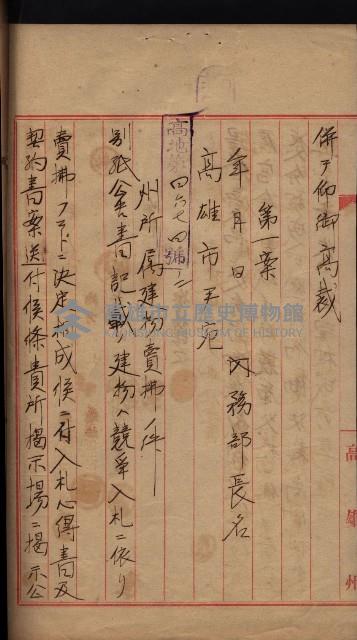 併テ仰御高裁
第一案
年月日　内務部長名
高雄市尹宛
高地
四六七四號ノ二
州所属建物賣拂ノ件
別紙公告書記載ノ建物ハ競爭入札ニ依リ
賣拂フコトニ決定相成候ニ付入札心得書及
契約書案送付候條貴所揭示場ニ揭示公
高雄州
高雄市立歷史博物館
KAOHSIUNG MUSEUM OF HISTORY